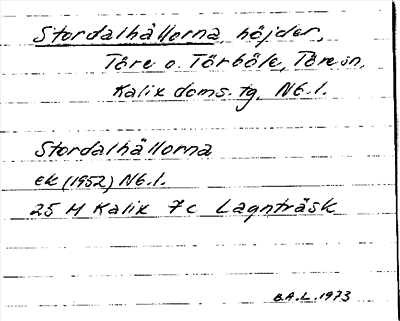 Stordalhällorna, höjder,
Töre o. Törböle, Töre sn,
Kalix doms. tg, Nb.l.
Stordalhällorna
ek (1952) Nb.l.
25 M Kalix 7c Lagnträsk
B.A.L. 1973